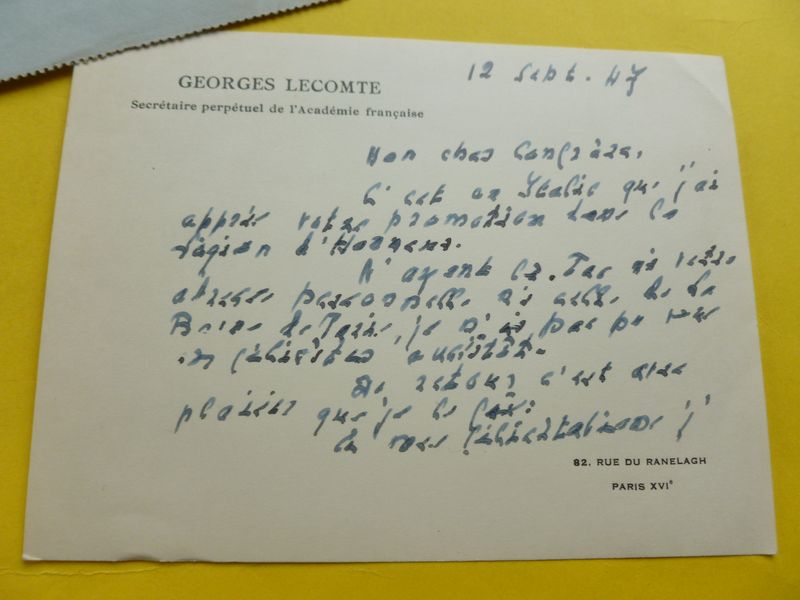 GEORGES LECOMTE
Secrétaire perpétuel de l'Académie française
12 Sept. 47
Mon cher Confrère,
C'est en Italie que j'ai
appris votre promotion dans la
Légion d'Honneur.
N'ayant ni votre
adresse personnelle ni celle de la
de Paris, je n'ai pas pu vous
en féliciter aussitôt.
De retour c'est avec
plaisir que je le fais.
à mes félicitations j'
82, RUE DU RANELAGH
PARIS XVIe